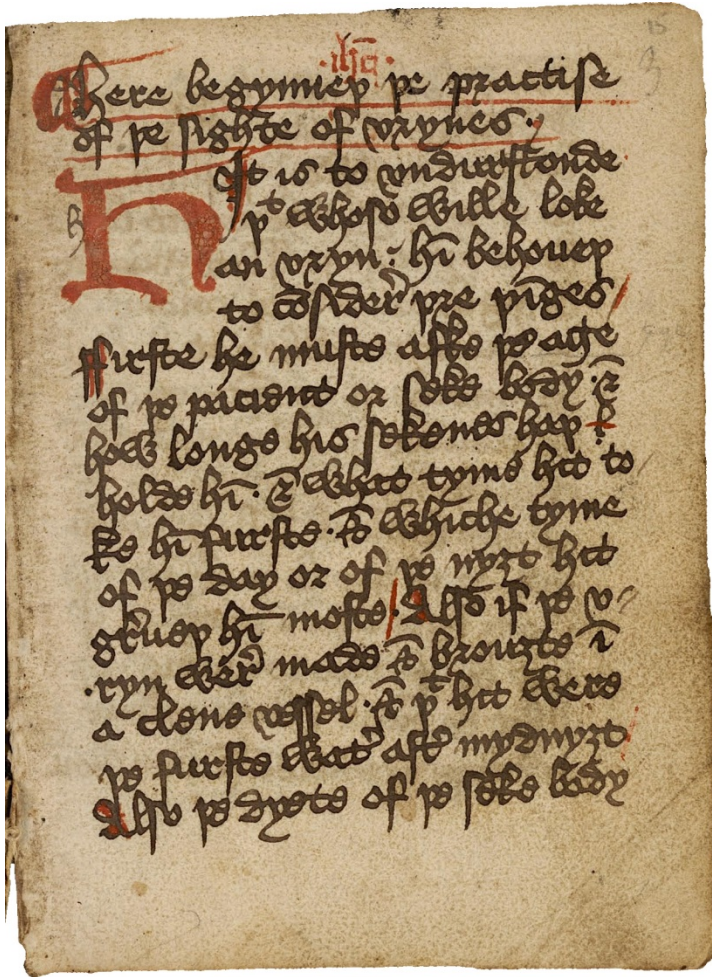 here begynneþ þe practise
of þe sighte of vrynes·
HIt is to vndirstonde
þͭ whoso wille loke
an vryn: hī behoueþ
to cōsider̉ þre þīges
ffirste he muste aske þe age
of þe pacient or seke body· &
how longe his sekenes haþ
holde hī· & what tyme hit to
ke hī furste· & whiche tyme
of þe day or of þe nyȝt hit
gr̉ueþ hī moste· Also if þe v-
ryn wer̉ made & brouȝte ī
a clene vessel· & þͭ hit were
þe furste wat̉ aft̉ mydnyȝt
Also þe dyete of þe seke body